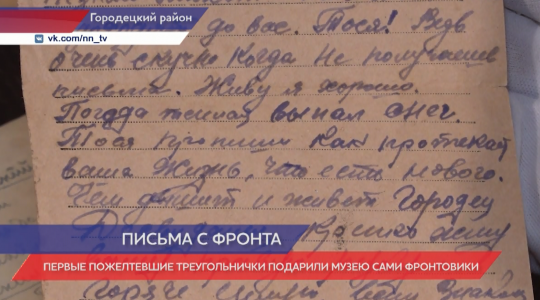 Городецкий район
vk.com/nn_tv
до вас. Тося! Ведь
очень скучно когда не получаешь
письма. Живу я хорошо.
Погода выпал снег.
Тося пропиши как протекает
ваша жизнь, что есть нового.
Чем дышит и живет Городец
ПИСЬМА С ФРОНТА
ПЕРВЫЕ ПОЖЕЛТЕВШИЕ ТРЕУГОЛЬНИЧКИ ПОДАРИЛИ МУЗЕЮ САМИ ФРОНТОВИКИ
Горяче